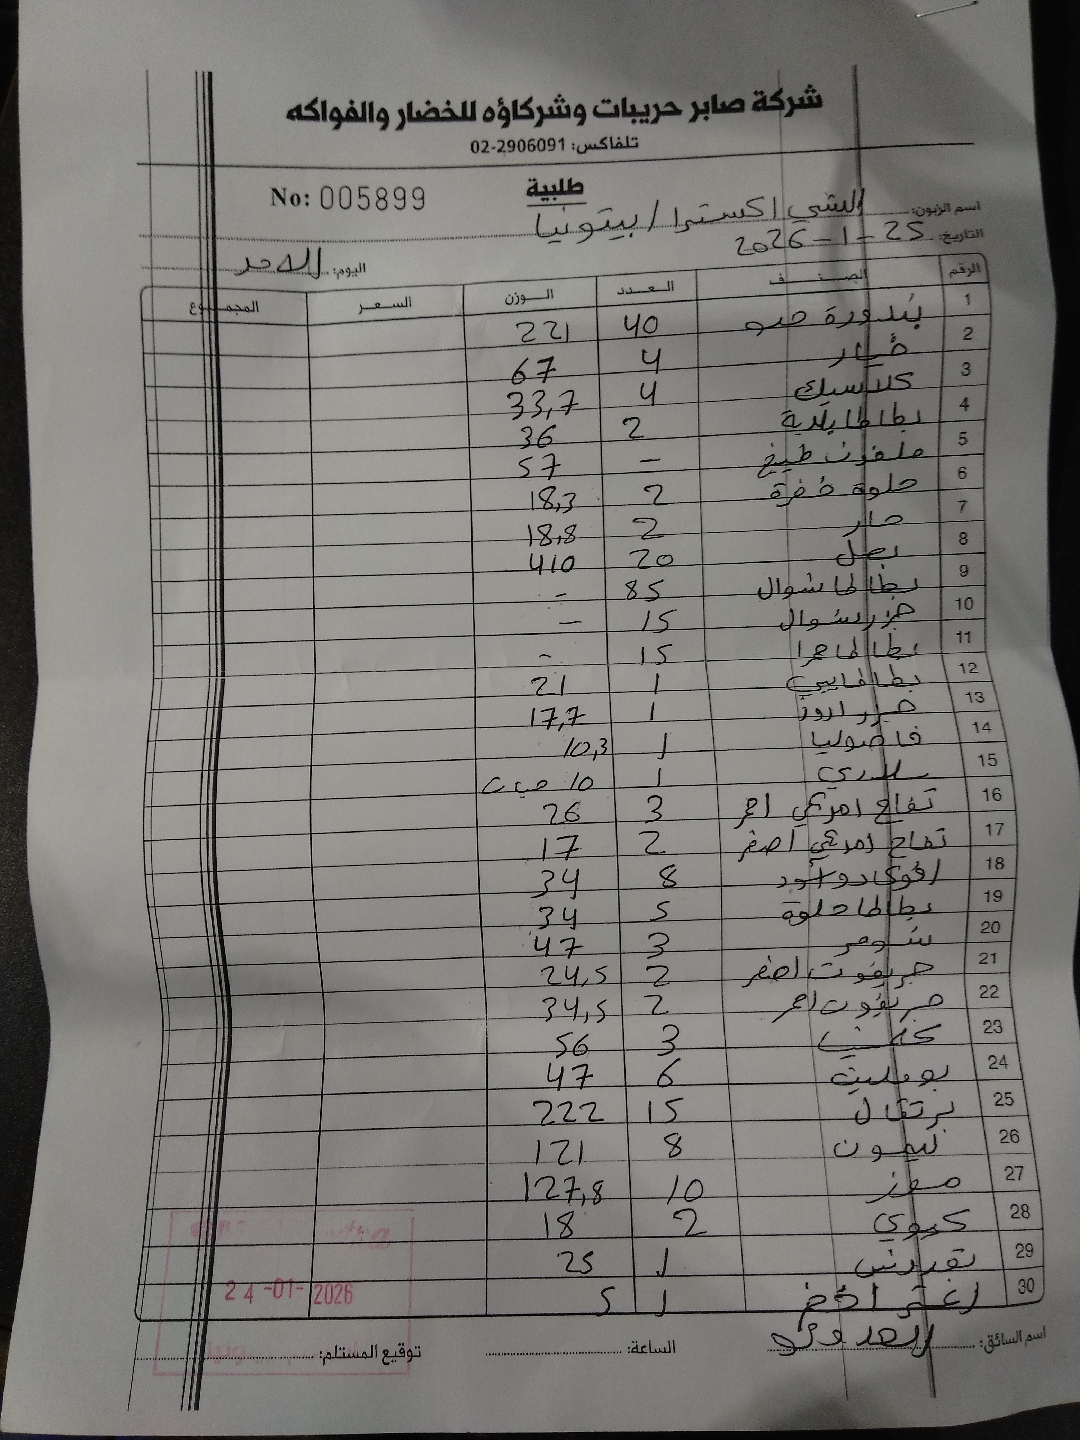 شركة صابر حريبات وشركاؤه للخضار والفواكه
تلفاكس: 02-2906091
No: 005899
طلبية
اسم الزبون: البشي اكسترا / بيتونيا
التاريخ: 25-1-2026
اليوم: الاحد
الرقم الصنف العدد الوزن السعر المجموع
1 بندورة 40 221
2 خيار 4 67
3 كلاسيك 4 33,7
4 بطاطا بلدية 2 36
5 ملفوف طبيخ - 57
6 حلوة خضرة 2 18,3
7 حار 2 18,8
8 بصل 20 410
9 بطاطا شوال 85 -
10 جزر شوال 15 -
11 بطاطا حمرا 15 -
12 بطاطا بيبي 1 21
13 1 17,7
14 فاصوليا 1 10,3
15 سلدري 1 10
16 تفاح امريكي احمر 3 26
17 تفاح امريكي اصفر 2 17
18 افوكادو اسود 8 34
19 بطاطا حلوة 5 34
20 شومر 3 47
21 جريفوت اصفر 2 24,5
22 جريفوت احمر 2 34,5
23 3 56
24 بومليت 6 47
25 برتقال 15 222
26 ليمون 8 121
27 موز 10 127,8
28 كيوي 2 18
29 1 25
30 1 5
24-01-2026
اسم السائق:
الساعة:
توقيع المستلم: